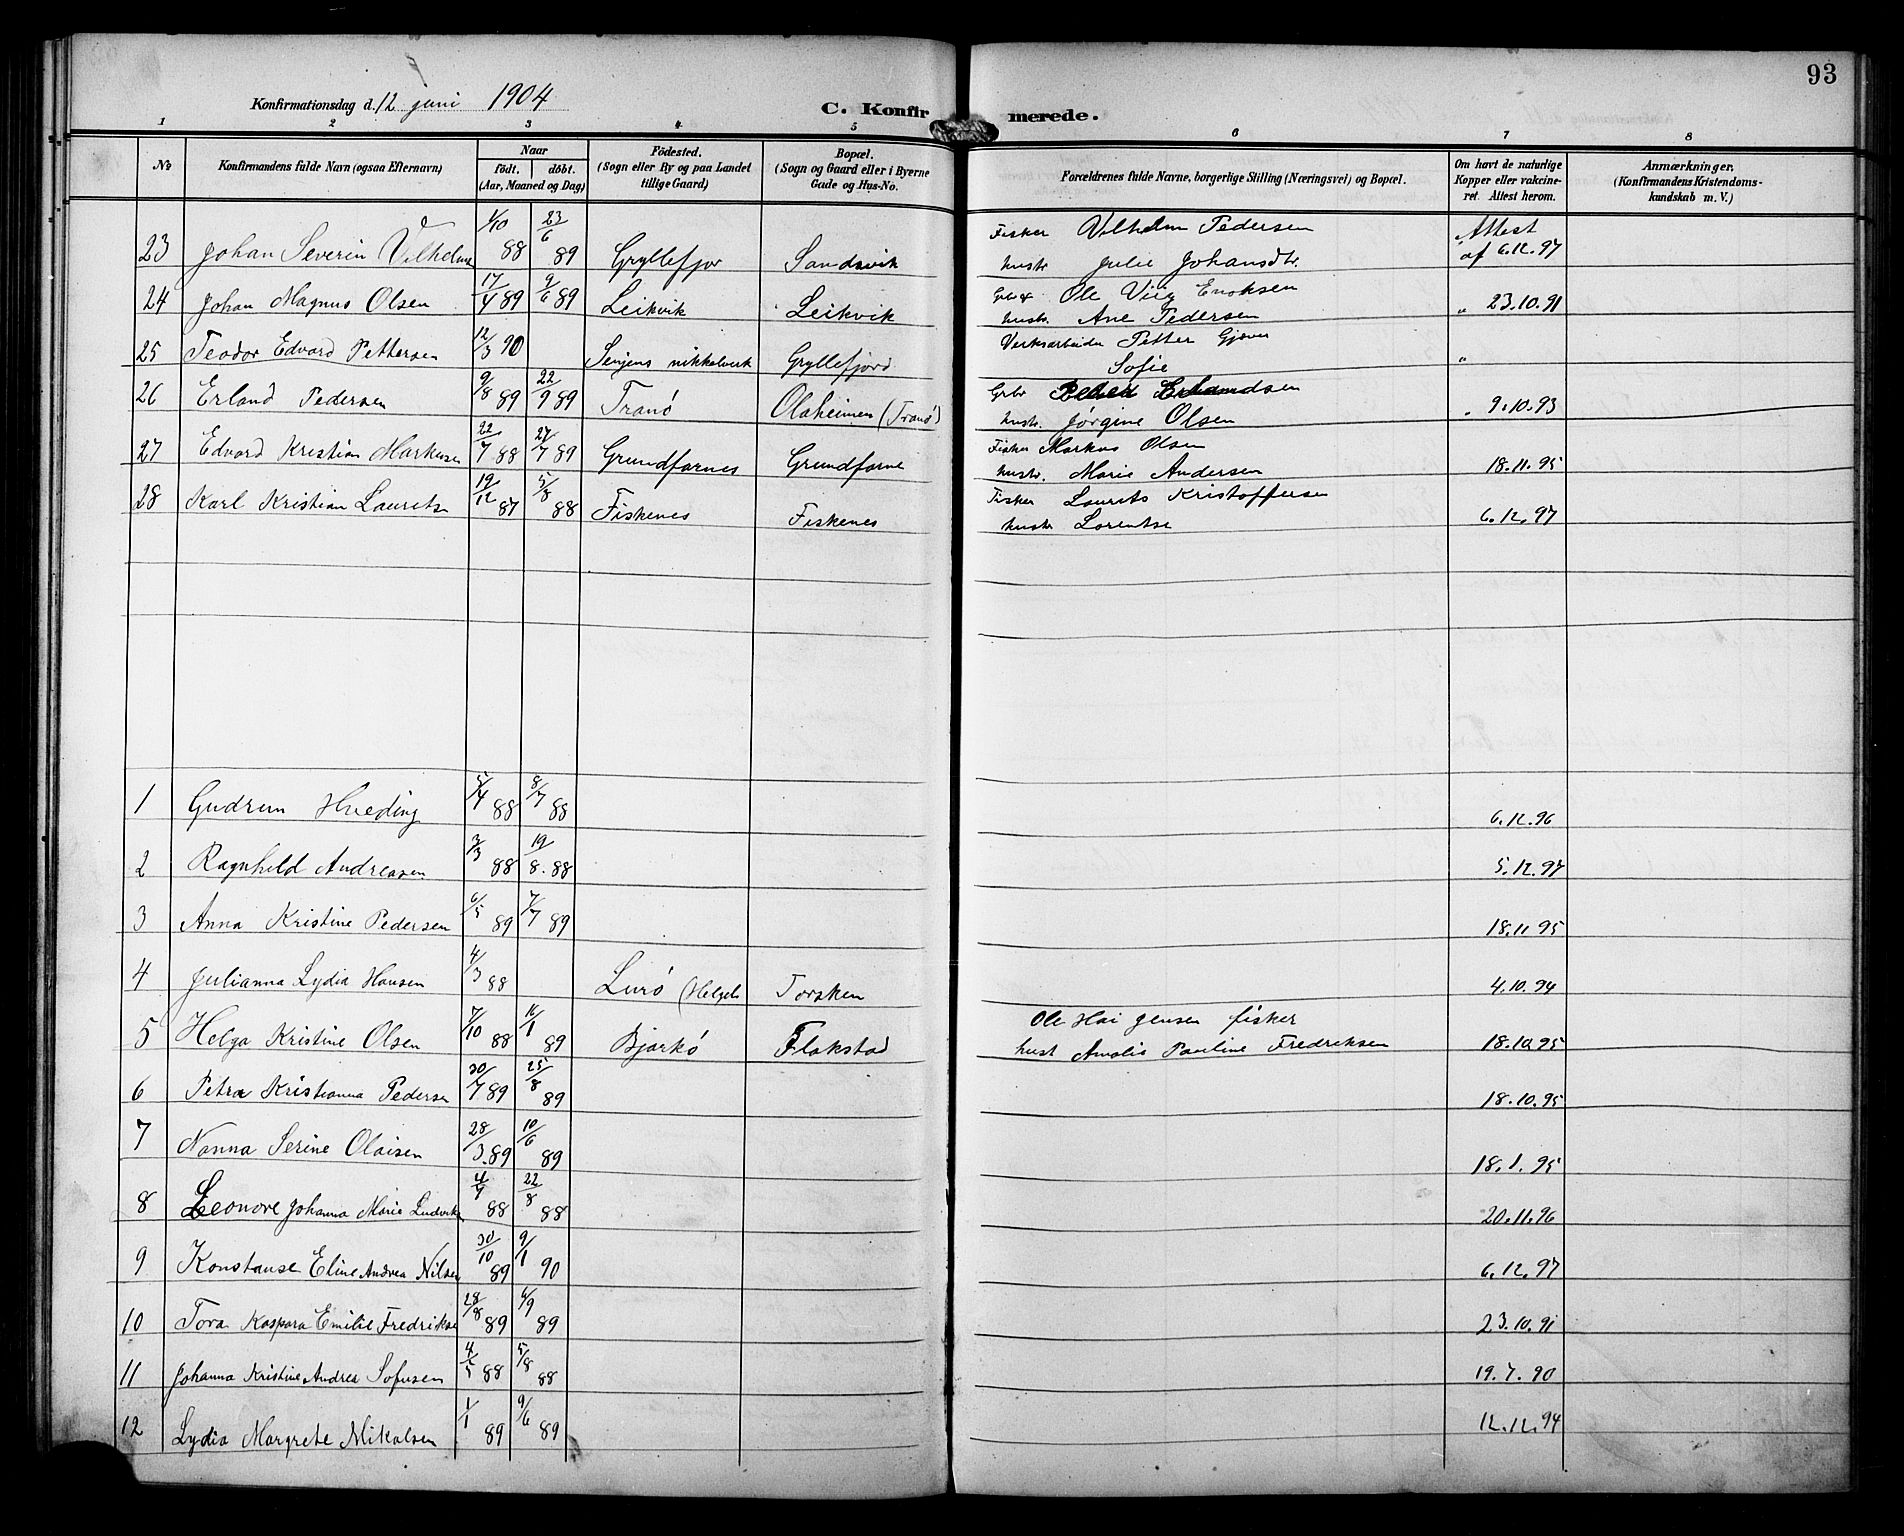 93
Konfirmationsdag d. 12 juni 1904
C. Konfirmerede.
1 2 3 4 5 6 7 8
No
Konfirmandens fulde Navn (ogsaa Efternavn)
Naar
födt. döbt.
(Aar, Maaned og Dag)
Födested.
(Sogn eller By og paa Landet
tillige Gaard)
Bopæl.
(Sogn og Gaard eller i Byerne
Gade og Hus-No.
Forældrenes fulde Navne, borgerlige Stilling (Næringsvei) og Bopæl.
Om havt de naturlige
Kopper eller vakcine-
ret. Attest herom.
Anmærkninger.
(Konfirmandens Kristendoms-
kundskab m. V.)
23 Johan Severin Vilhelmsen 1/10 88 23/6 89 Gryllefjor Sandsvik Fisker Vilhelm Pedersen Attest
hustr Julie Johansdtr. af 6.12.97
24 Johan Magnus Olsen 17/4 89 9/6 89 Leikvik Leikvik Ole Enoksen
hustr. Ane Pedersen " 23.10.91
25 Teodor Edvard Pettersen 12/3 90 Senjens nikkelverk Gryllefjord Verksarbeider Petter Gjæver
Sofie "
26 Erland Pedersen 9/8 89 22/9 89 Tranö Olaheimen (Tranö) Grbr Peder Erlandsen
hustr. Jörgine Olsen " 9.10.93
27 Edvard Kristian Markussen 22/7 88 27/7 89 Grundfarnes Grundfarne Fisker Markus Olsen
hustr. Marie Andersen 18.11.95
28 Karl Kristian Lauritsen 19/12 87 5/8 88 Fiskenes Fiskenes Fisker Laurits Kristoffersen
hustr Lorentse 6.12.97
1 Gudrun 5/4 88 8/7 88 6.12.96
2 Ragnhild Andreasen 3/3 88 19/8. 88 5.12.97
3 Anna Kristine Pedersen 6/5 89 7/7 89 18.11 95
4 Julianna Lydia Hansen 4/3 88 Lurö (Helgel. Torsken 4.10.94
5 Helga Kristine Olsen 7/10 88 16/1 89 Bjarkö Flakstad Ole Hai Jensen fisker
hust Amalie Pauline Fredriksen 18.10.95
6 Petra Kristianna Pedersen 30/7 89 25/8 89 18.10.95
7 Nanna Serine Olaisen 28/3.89 10/6 89 18.1.95
8 Leonore Johanna Marie Ludviksen 4/7 88 22/8 88 20.11.96
9 Konstanse Eline Andrea Nilsen 30/10 89 9/1 90 6.12.97
10 Tora Kaspara Emilie Fredriksen 28/8 89 6/9 89 23.10.91
11 Johanna Kristine Andrea Sofusen 4/5 88 5/8 88 19.7.90
12 Lydia Margrete Mikalsen 1/1 89 9/6 89 12.12.94